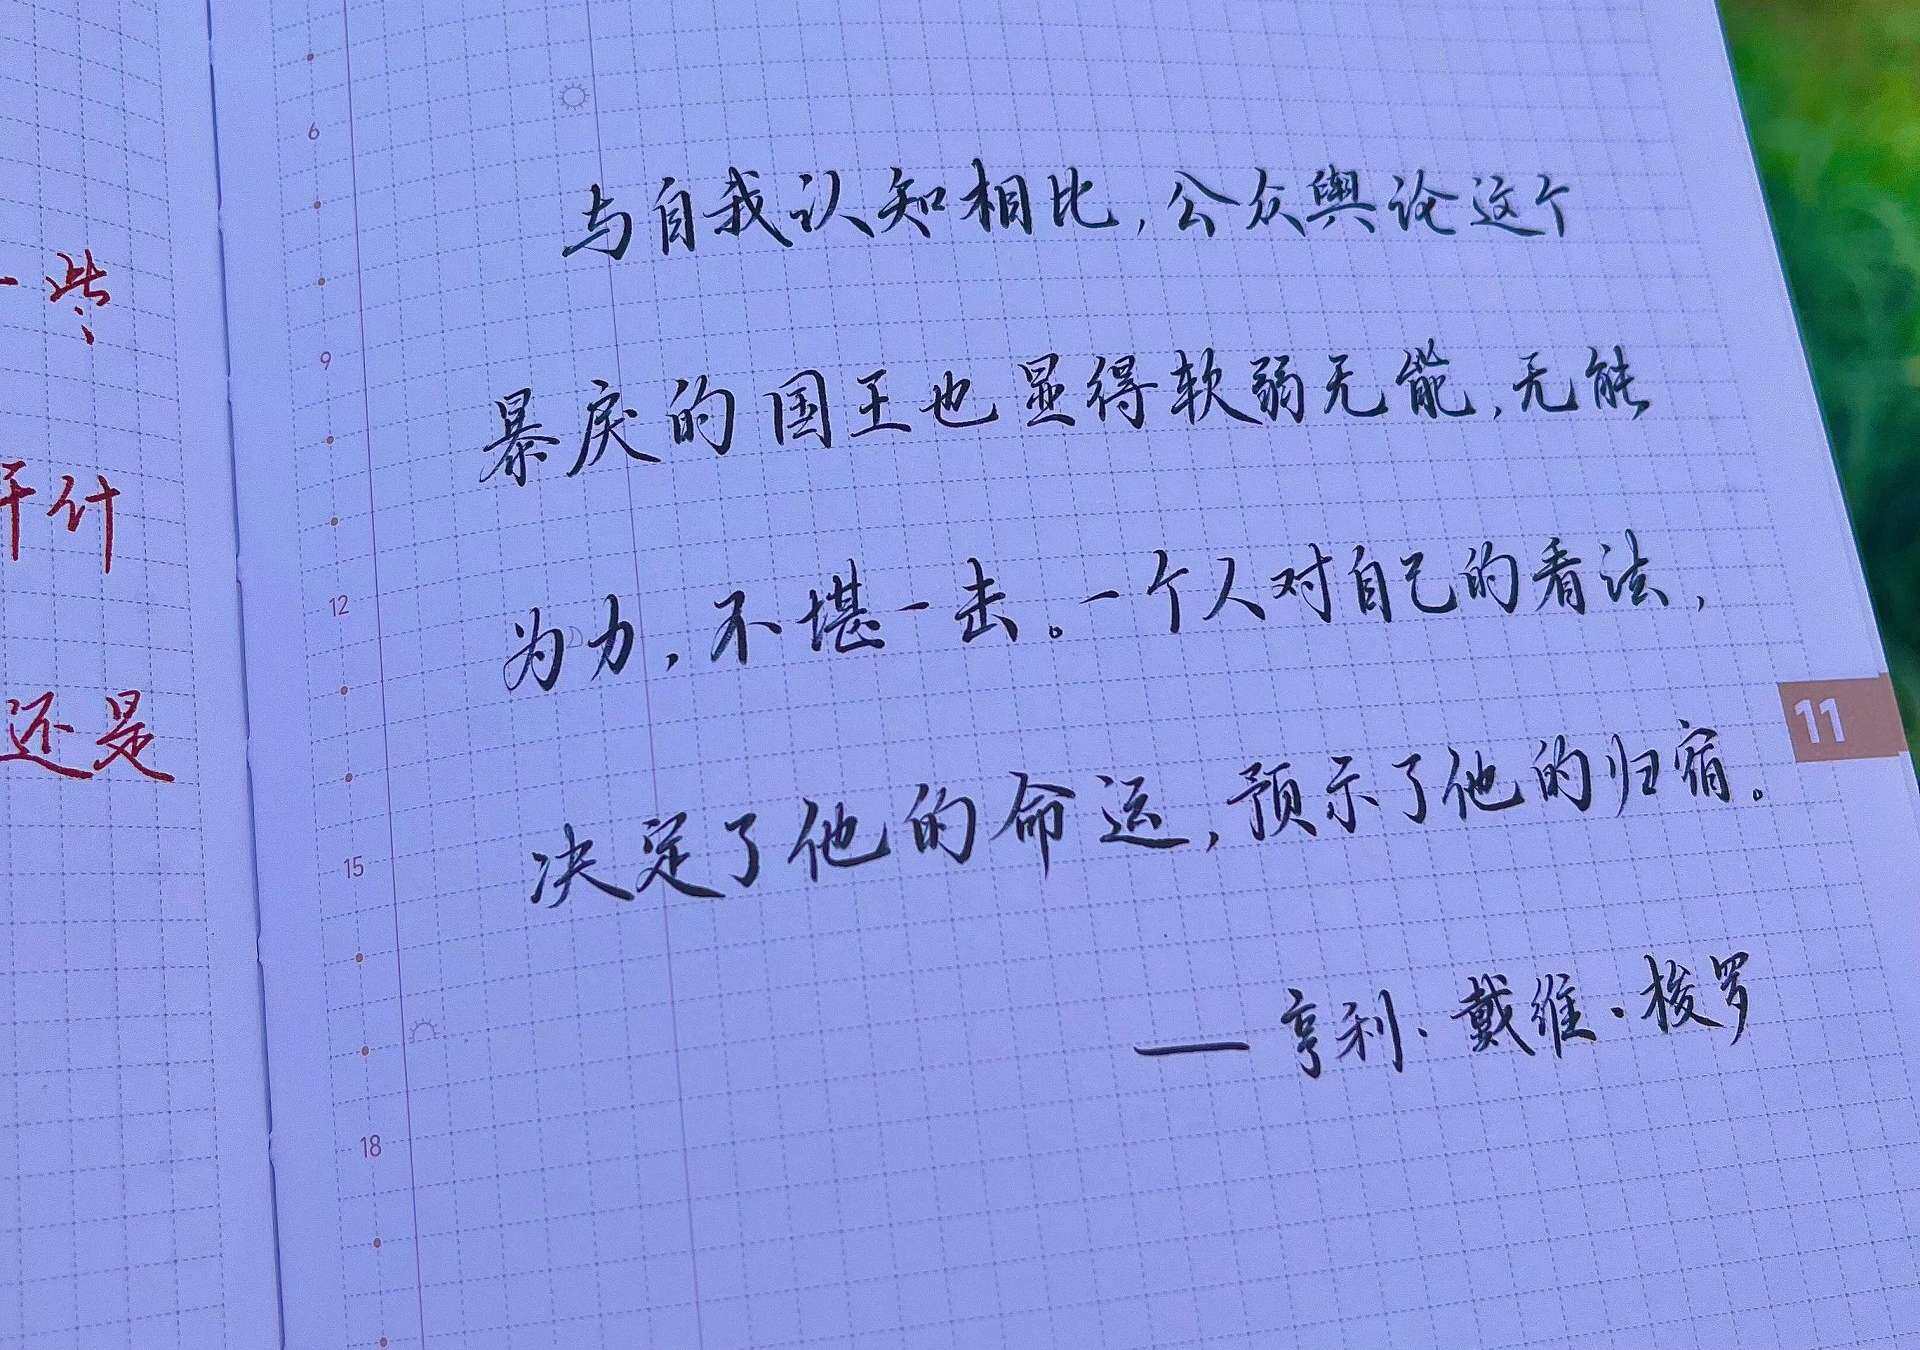 一些
干什
还是
6
9
12
15
18
与自我认知相比，公众舆论这个
暴戾的国王也显得软弱无能，无能
为力，不堪一击。一个人对自己的看法，
决定了他的命运，预示了他的归宿。
——亨利·戴维·梭罗
11